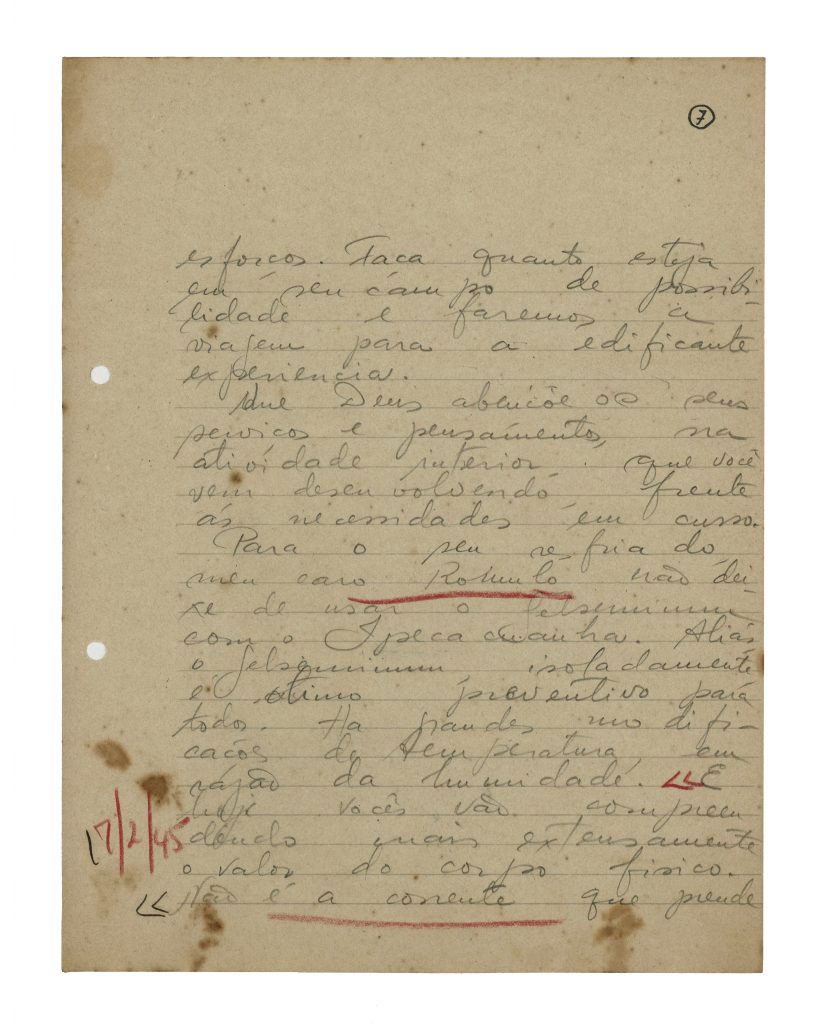 7
esforcos. Faca quanto esteja
em seu campo de possibi-
lidade e faremos a
viagem para a edificante
experiencia.
Que Deus abençôe os seus
servicos e pensamentos, na
atividade interior que você
vem desenvolvendo frente
ás necessidades em curso.
Para o seu resfriado
meu caro Romulo não dei-
xe de usar o Gelseminum
com o Ipecacuanha. Aliás
o Gelseminum isoladamente
é otimo preventivo para
todos. Ha grandes modifi-
cações de temperatura em
razão da humidade. << E
hoje vocês vão compreen
dendo mais extensamente
17/2/45
o valor do corpo fisico.
<< Não é a corrente que prende